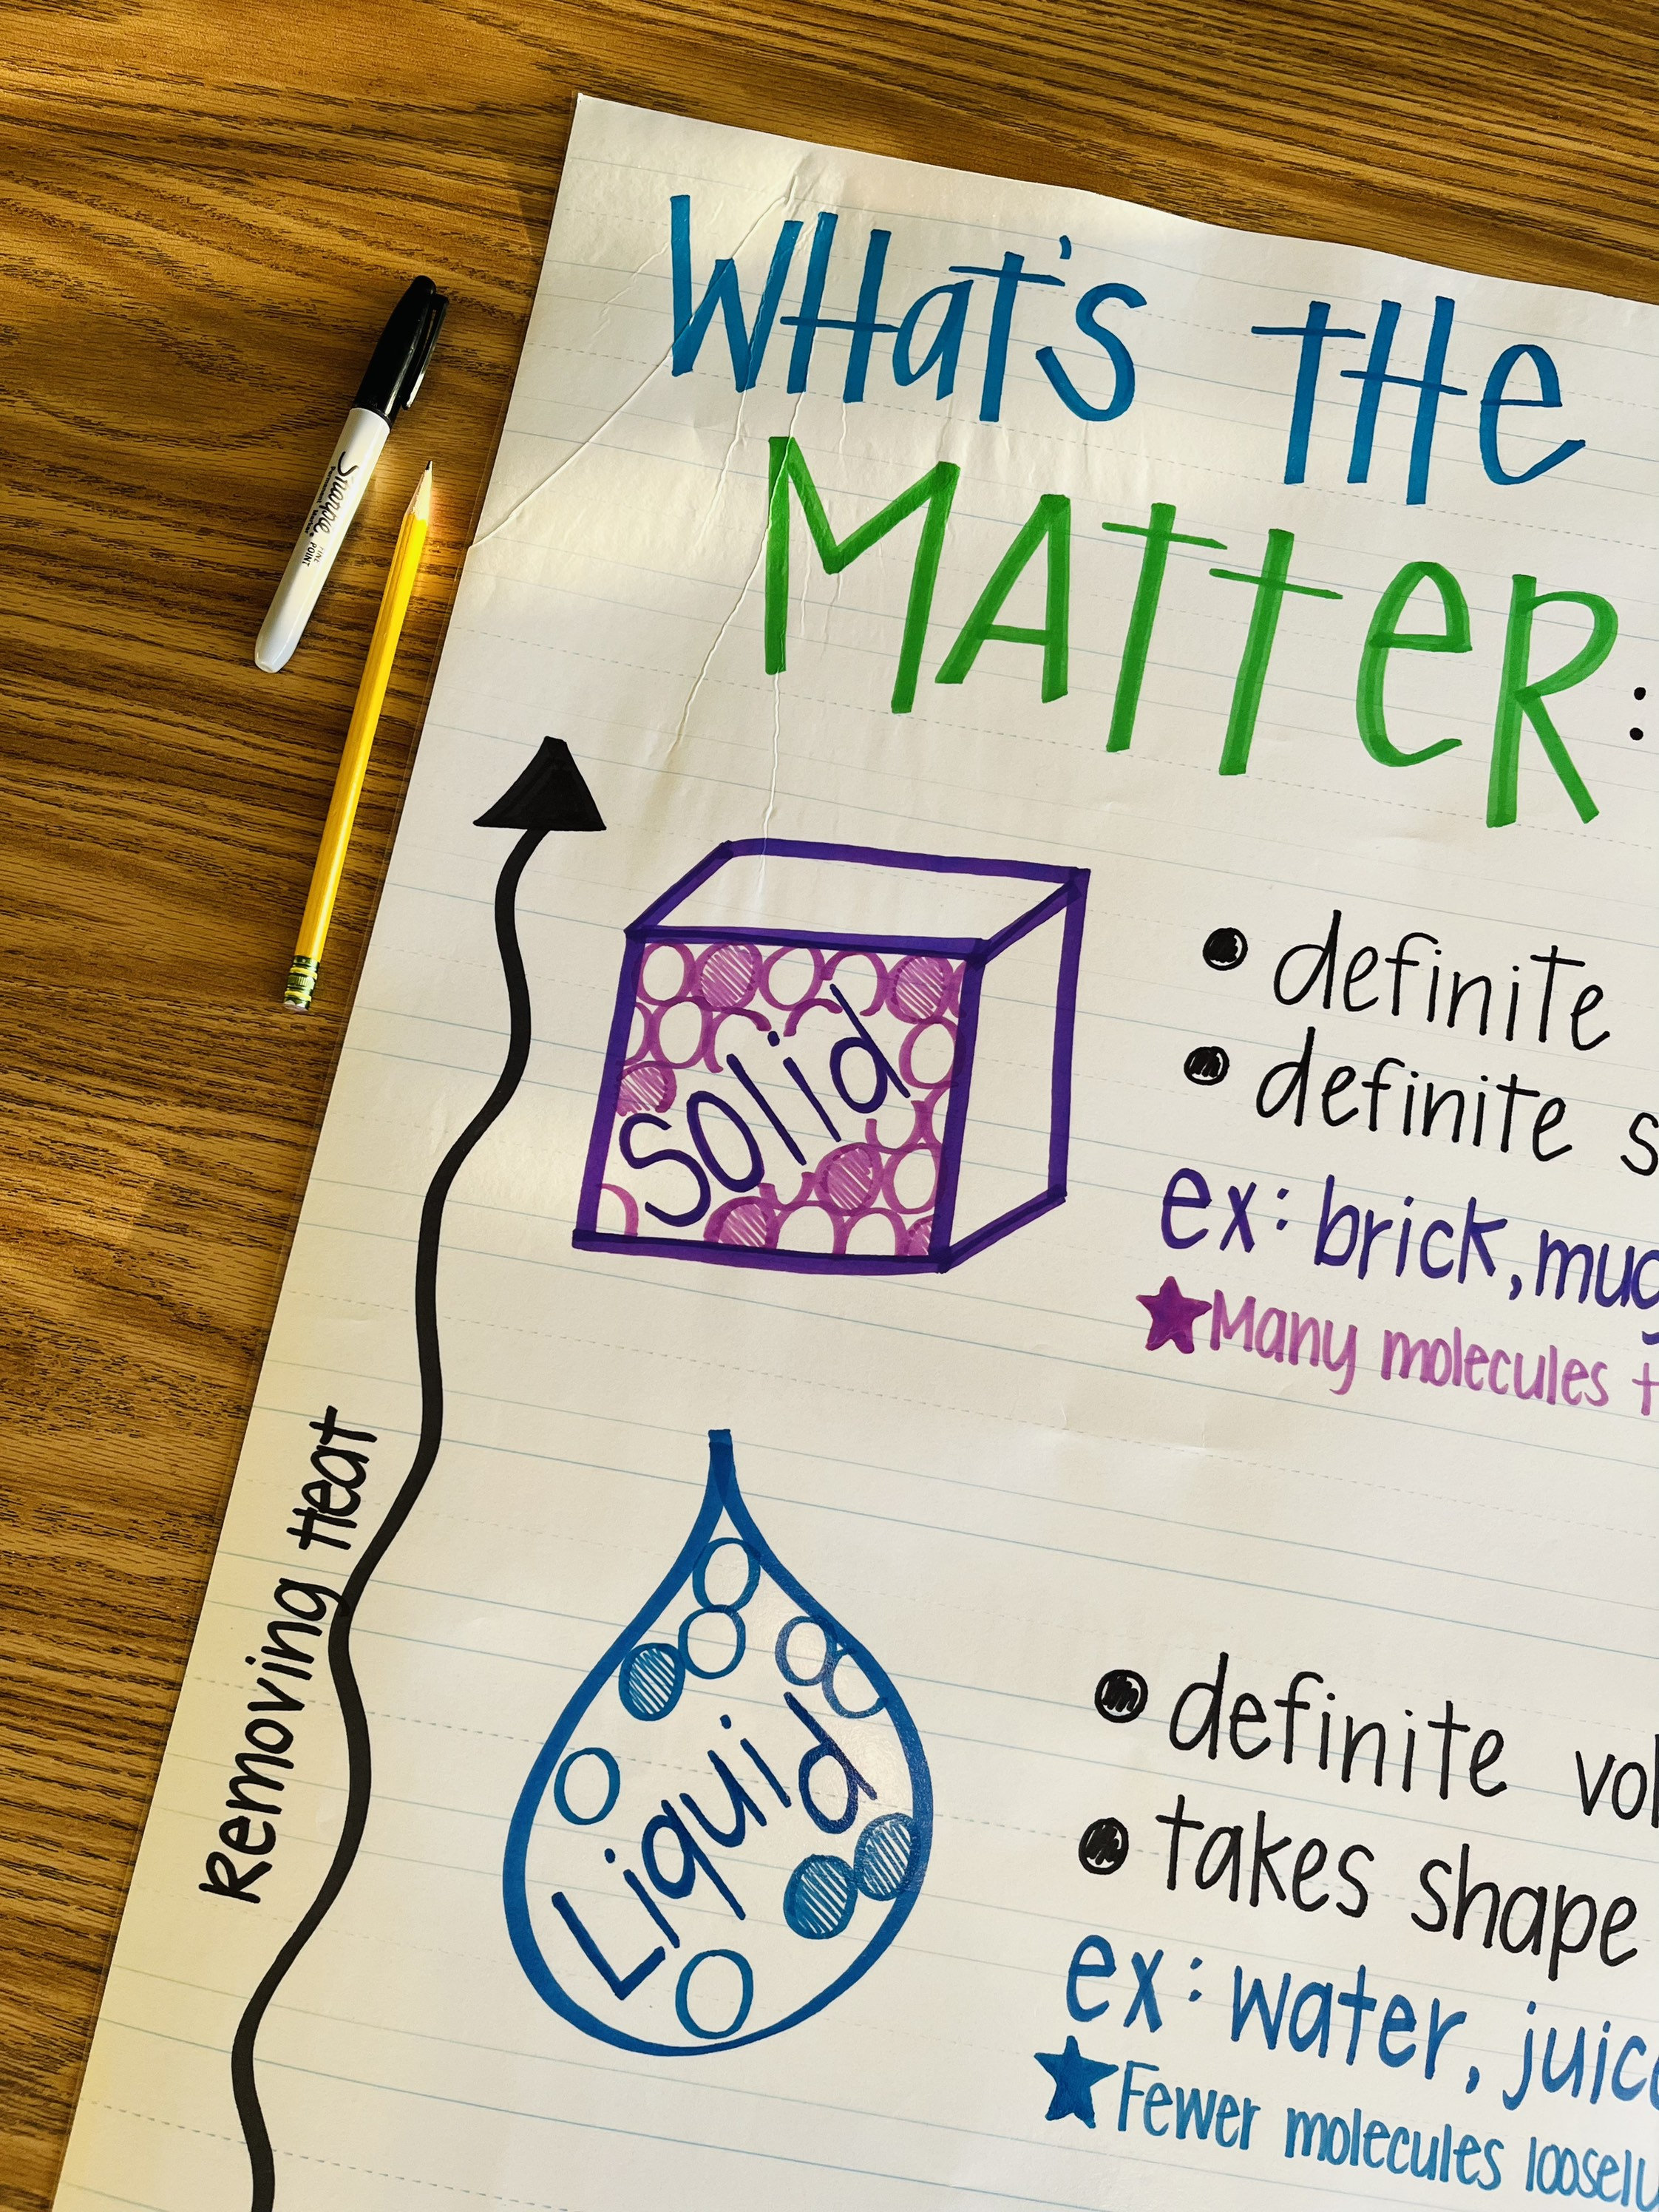 WHat's tHe
MAtteR:
Solid
• definite
• definite
ex: brick,
★Many molecules
Removing Heat
Liquid
• definite
• takes shape
ex: water,
★Fewer molecules
Sharpie
FINE POINT